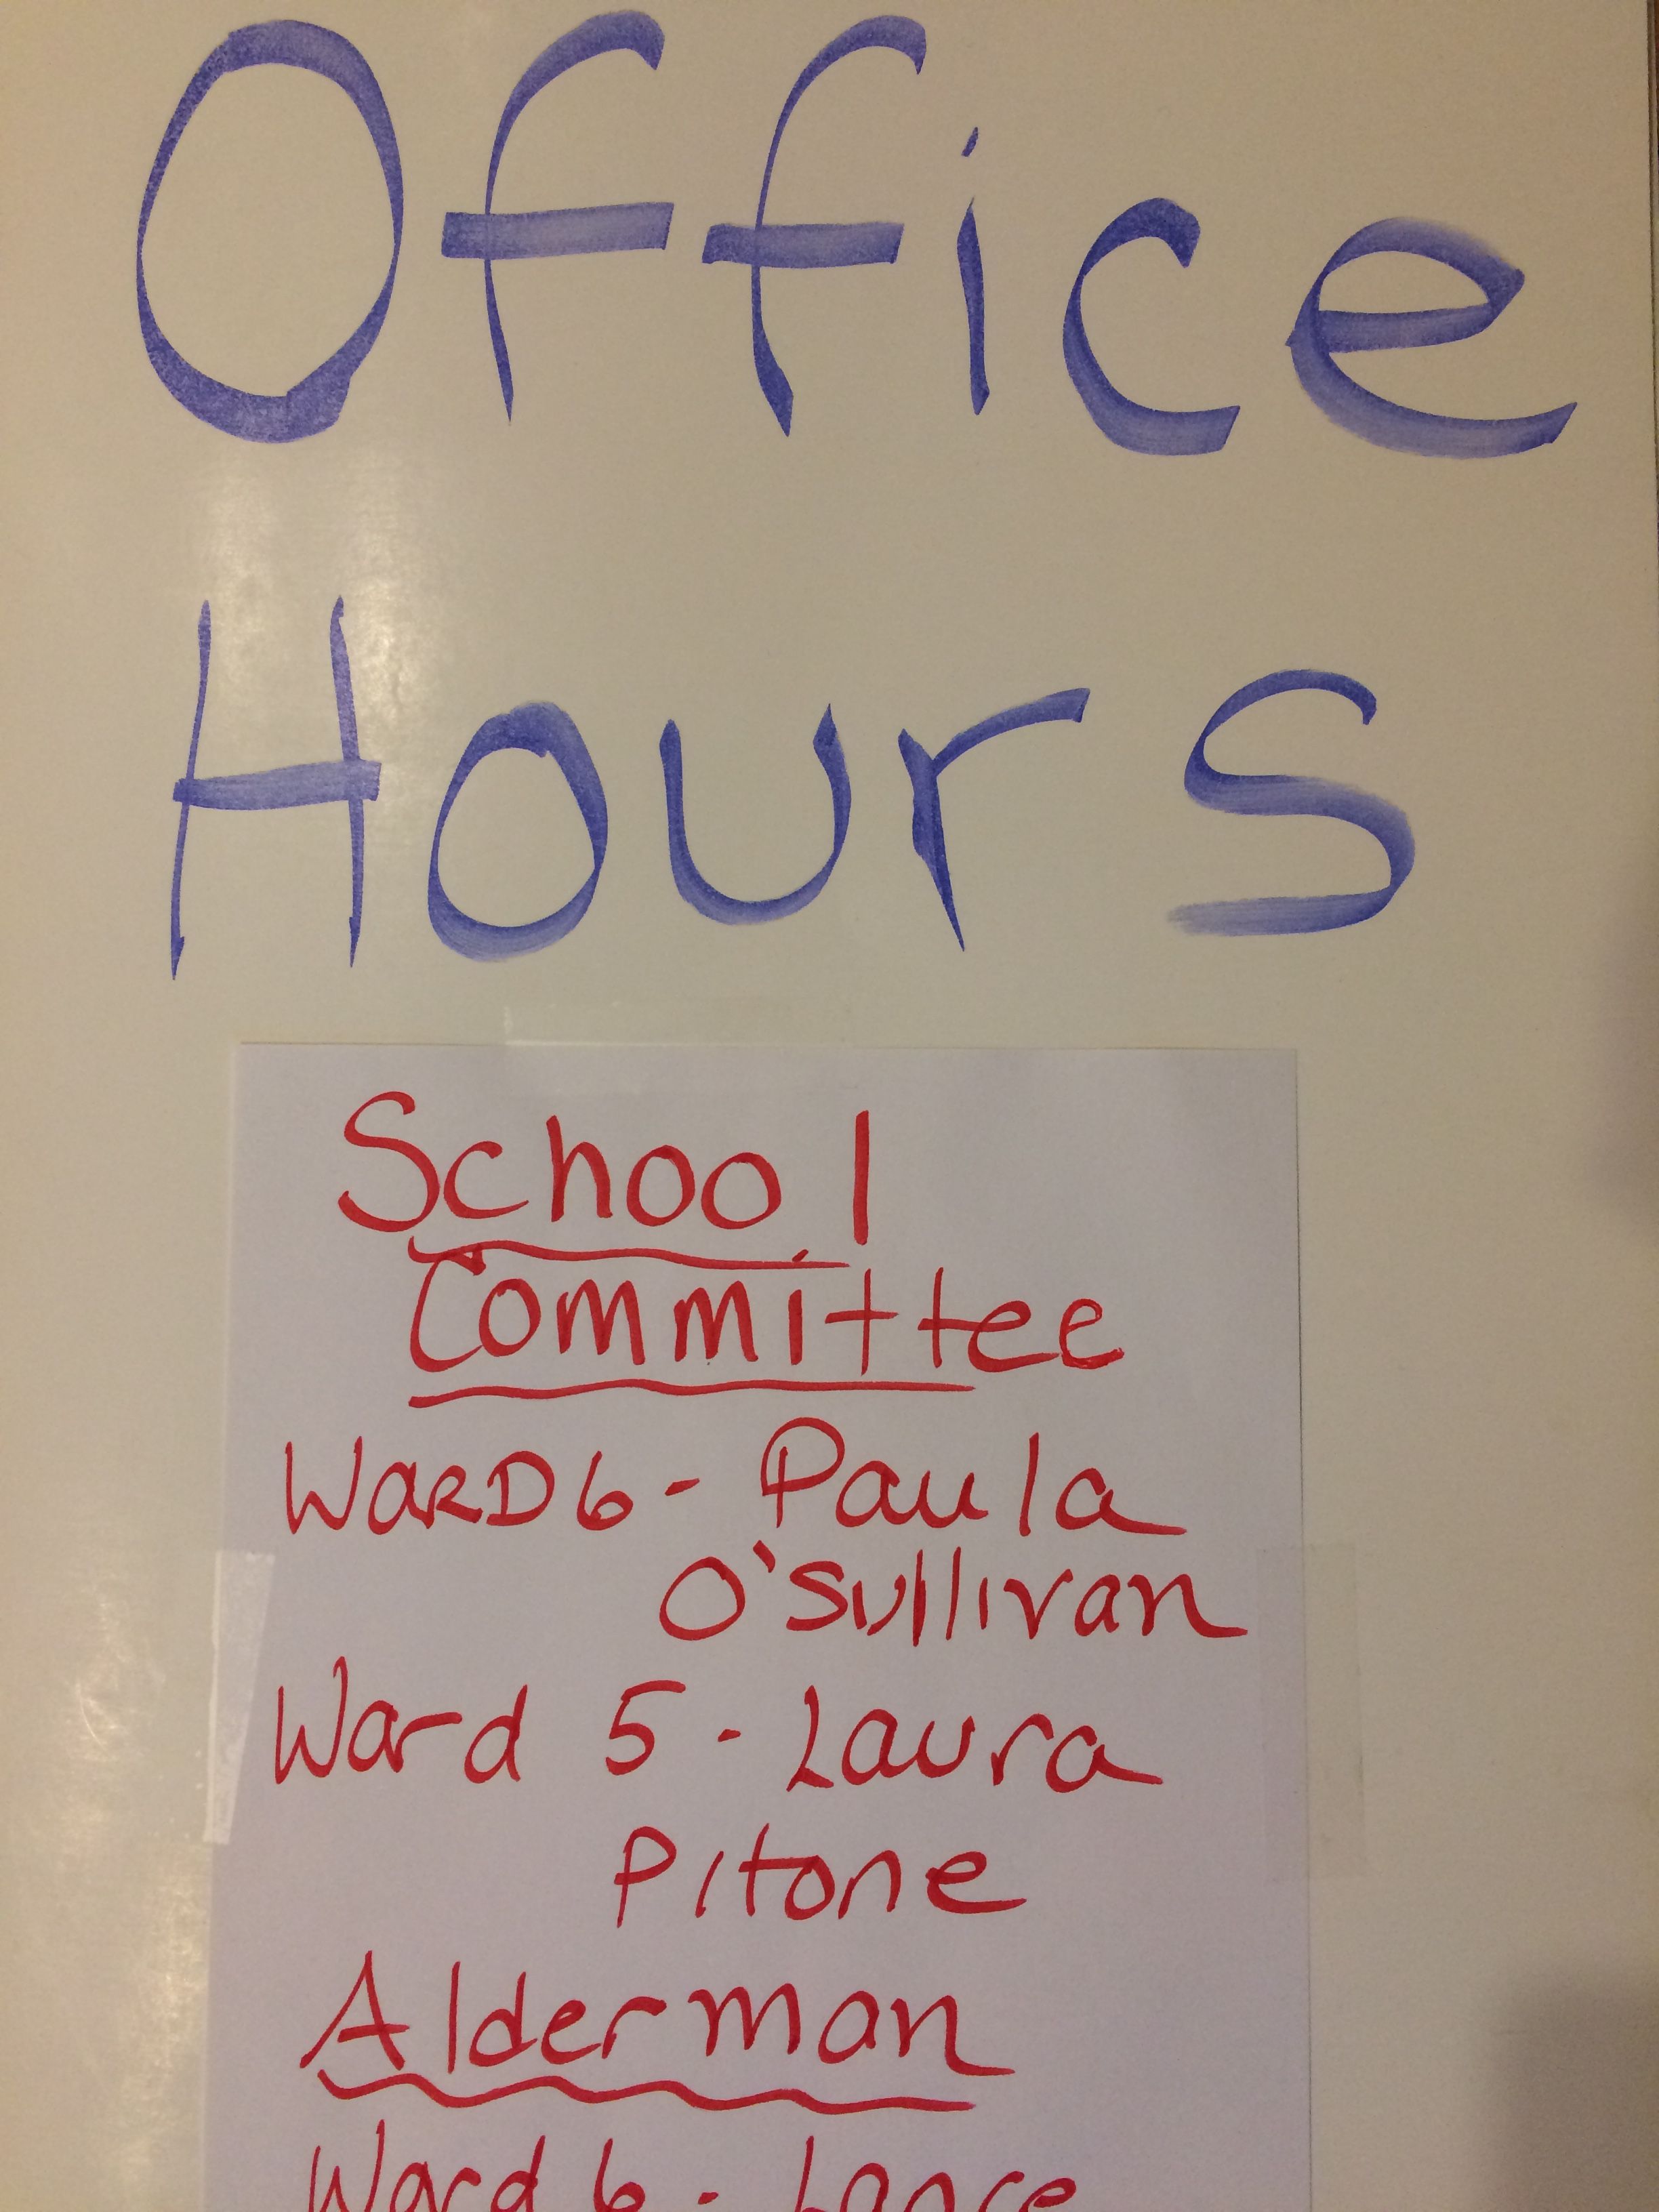 Office
Hours
School
Committee
WARD 6 - Paula
O'Sullivan
Ward 5 - Laura
Pitone
Alderman
Ward 6 - Lance